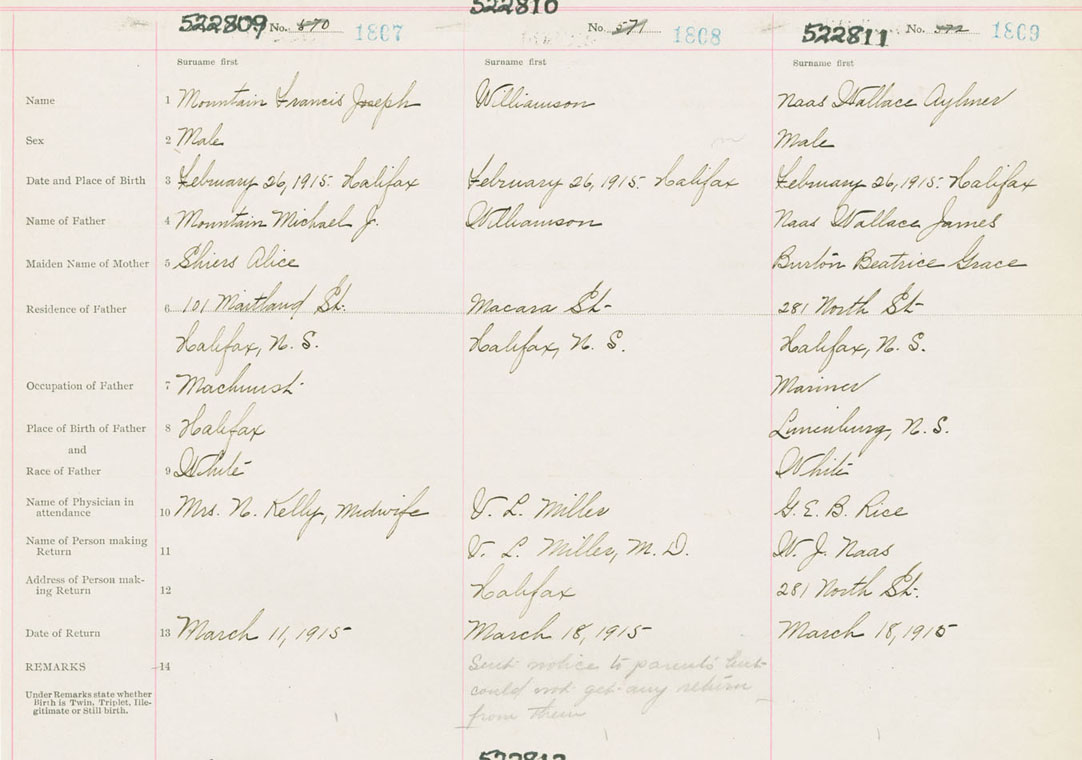 522809 No. 870 1807
522810 No. 571 1808
522811 No. 572 1809
Surname first Surname first Surname first
Name 1 Mountain Francis Joseph Williamson Naas Wallace Aylmer
Sex 2 Male Male
Date and Place of Birth 3 February 26, 1915. Halifax February 26, 1915 Halifax February 26, 1915. Halifax
Name of Father 4 Mountain Michael J. Williamson Naas Wallace James
Maiden Name of Mother 5 Shiers Alice Burton Beatrice Grace
Residence of Father 6 101 Maitland St. Macara St. 281 North St.
Halifax, N. S. Halifax, N. S. Halifax, N. S.
Occupation of Father 7 Machinist Mariner
Place of Birth of Father 8 Halifax Lunenburg, N. S.
and
Race of Father 9 White White
Name of Physician in
attendance 10 Mrs. N. Kelly, Midwife V. L. Miller G. E. B. Rice
Name of Person making
Return 11 V. L. Miller, M. D. W. J. Naas
Address of Person mak-
ing Return 12 Halifax 281 North St.
Date of Return 13 March 11, 1915 March 18, 1915 March 18, 1915
REMARKS 14 Sent notice to parents but
could not get any return
from them
Under Remarks state whether
Birth is Twin, Triplet, Ille-
gitimate or Still birth.